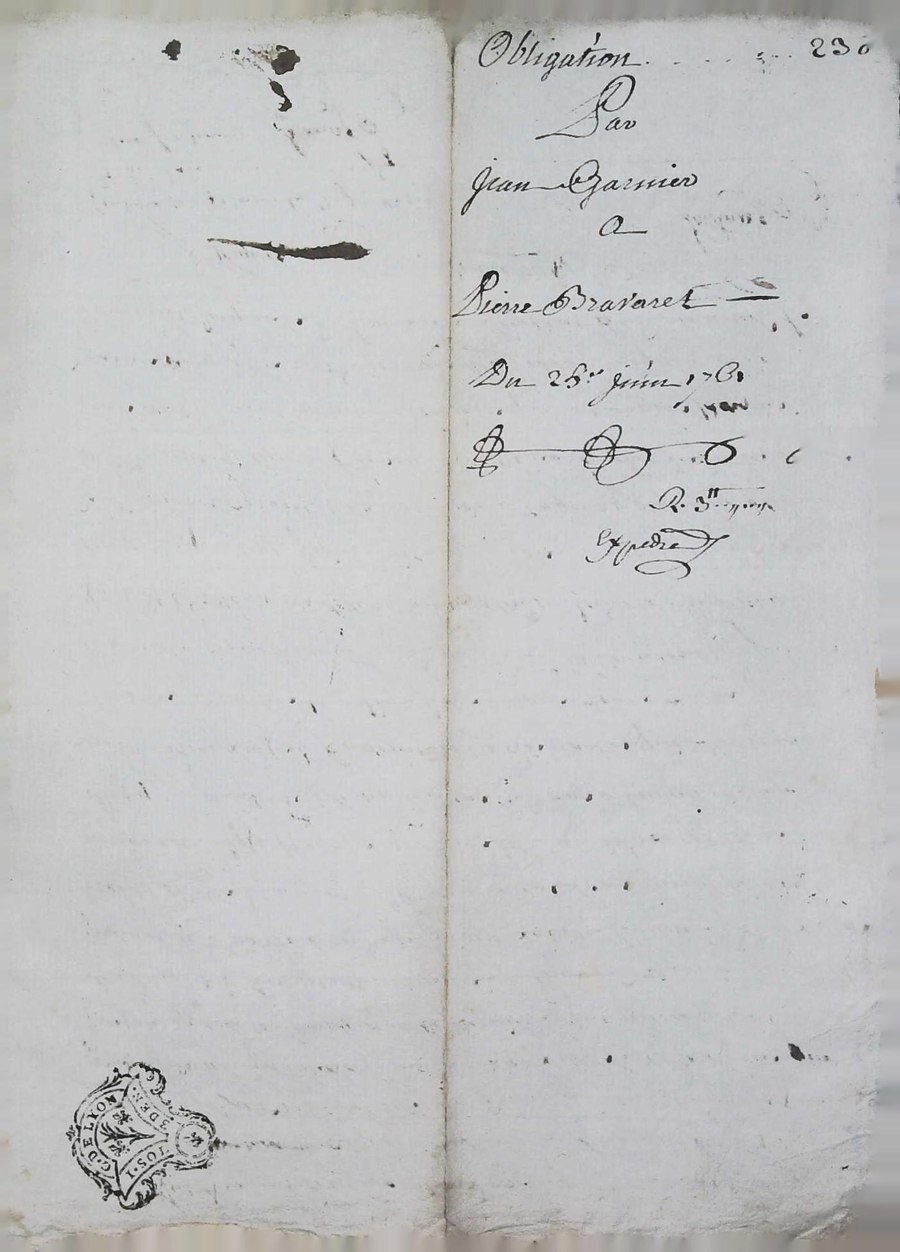 Obligation 230
Par
Jean Garnier
A
Pierre Bravaret
Du 26.e juin 1761
R. 3
Expedié
G. DE LYON
1. SOL 3 DEN.